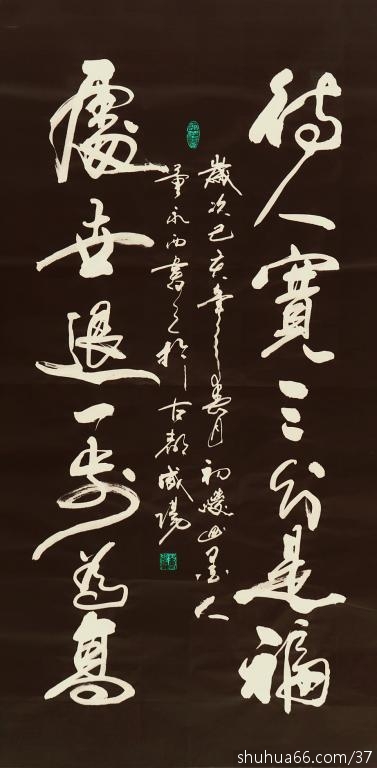 待人寬三分是福
歲次己亥年之春月初嵕山墨人
董永書之於古都咸陽
處世退一步為高
shuhua66.com/37